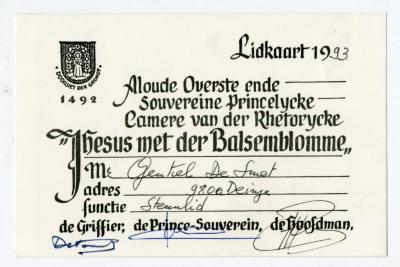 Lidkaart 1993
1492
Aloude Overste ende
Souvereine Princelycke
Camere van der Rhetorycke
"Jhesus met der Balsemblomme"
Mr. De Smet
adres 9800 Deinze
functie Steunlid
de Griffier, de Prince-Souverein, de Hoofdman.